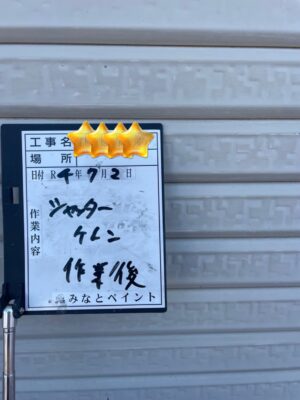 工事名
場所
日付 R4年7月2日
作業内容
シャッター
ケレン
作業/後
みなとペイント